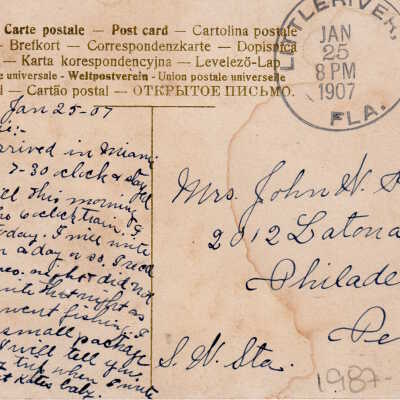 Carte postale — Post card — Cartolina postale
— Brefkort — Correspondenzkarte — Dopisnica
— Karta korespondencyjna — Levelező-Lap
universale - Weltpostverein - Union postale universelle
— Cartão postal — ОТКРЫТОЕ ПИСЬМО.
LITTLERIVER,
JAN
25
8 PM
1907
FLA.
Jan 25-07
arrived in Miami
7-30 oclock &
this morning
6 oclock train. I
today. I will write
in a day or so. I
night did not
write that night as
went fishing. I
small package
I will tell you
trip when I write
Mrs. John W.
2012 Latona
Philade
Pe
S. W. Sta.
1987-